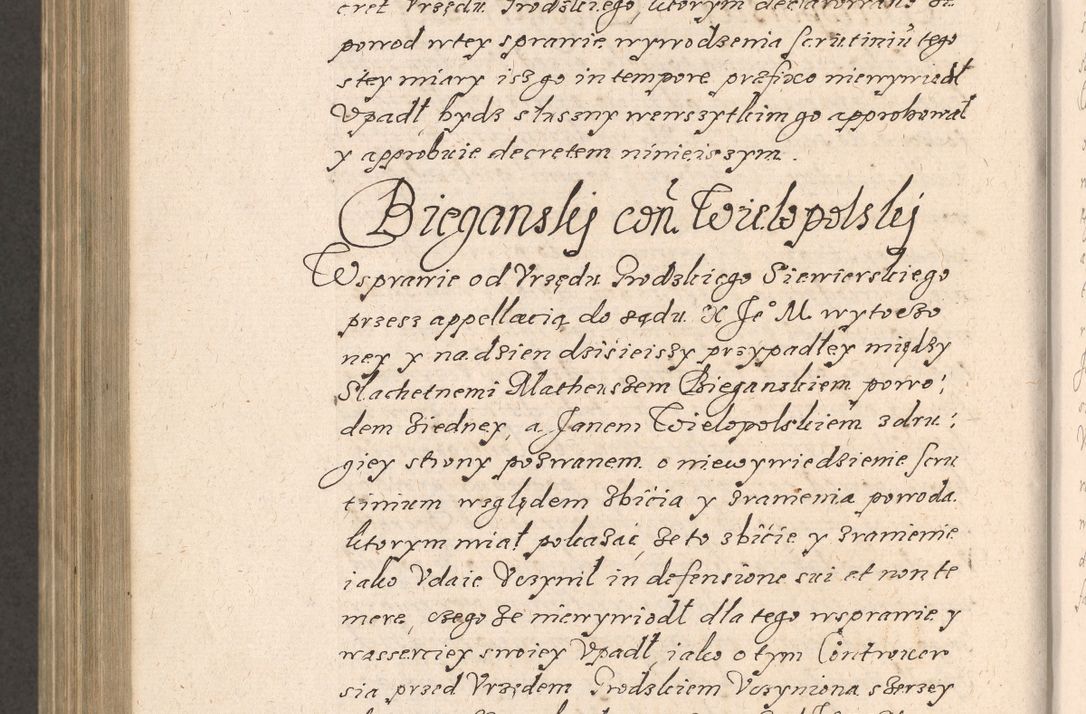 cret Vrzędu Grodzkiego, ktorym declarowano
powod wtey sprawie wywodzenia scrutiniũ tego
stey miary isz go in tempore præfixo niewywiodł
Vpadł, bydz słuszny wewszytkim go approbował
y approbuie decretem ninieiszym.
Bieganskÿ coñ. Wielopolskÿ
Wsprawie od Vrzędu Grodzkiego Siewierskiego
przesz appellacią do sądu X Je° M. wytoczo
ney y na dzien dzisieiszy przypadłey między
Slachetnemi Matheuszem Bieganskiem powo;
dem ziedney, a Janem Wielopolskiem zdru;
giey strony pozwanem o niewywiedzienie scru
tinium względem zbicia y zranienia powoda
ktorym miał pokazać że to zbicie y zranienie
iako Vdaie Vczynił in defensione sui et non te
mere, czego że niewywiodł dla tego wsprawie y
wasserciey swoiey Vpadł, iako o tym Controuer
sia przed Vrzędem Grodzkiem Vczyniona szerzey